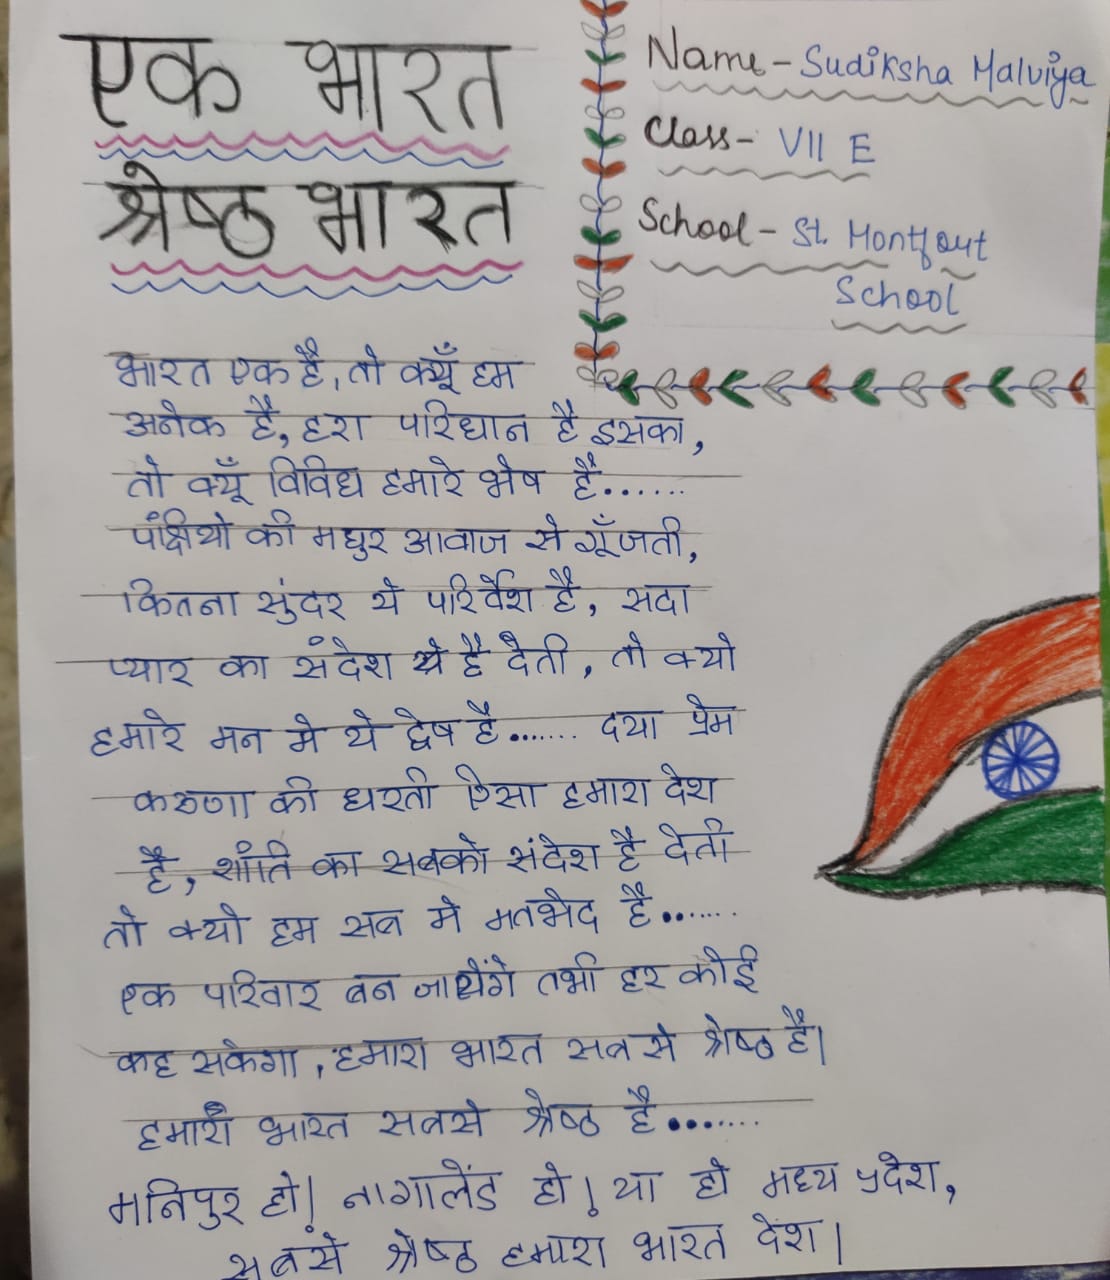 एक भारत
श्रेष्ठ भारत
Name - Sudiksha Malviya
Class - VII E
School - St. Montfort
School
भारत एक है, तो क्यूँ हम
अनेक है, हरा परिधान है इसका,
तो क्यूँ विविध हमारे भेष है......
पंक्षियो की मधुर आवाज से गूँजती,
कितना सुंदर ये परिवेश है, सदा
प्यार का संदेश ये है देती, तो क्यो
हमारे मन मे ये द्वेष है....... दया प्रेम
करुणा की धरती ऐसा हमारा देश
है, शांति का सबको संदेश है देती
तो क्यो हम सब मे मतभेद है.......
एक परिवार बन जायेंगे तभी हर कोई
कह सकेगा, हमारा भारत सबसे श्रेष्ठ है।
हमारा भारत सबसे श्रेष्ठ है.......
मनिपुर हो! नागालेंड हो! या हो मध्य प्रदेश,
सबसे श्रेष्ठ हमारा भारत देश।